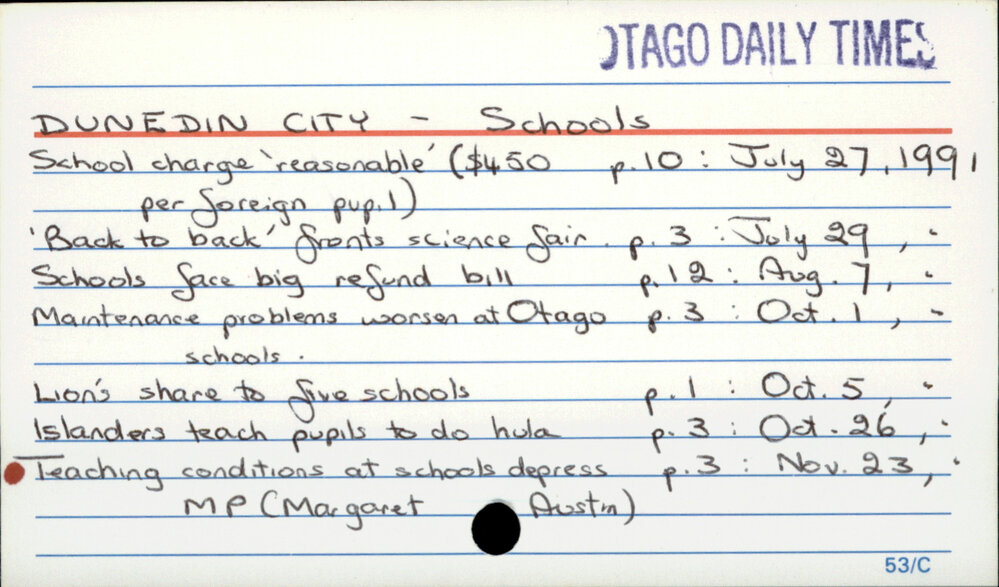 OTAGO DAILY TIMES
DUNEDIN CITY - Schools
School charge 'reasonable' ($450 p.10 : July 27, 1991
per foreign pupil)
'Back to back' fronts science fair. p. 3 : July 29, "
Schools face big refund bill p.12 : Aug. 7, "
Maintenance problems worsen at Otago p. 3 : Oct. 1, "
schools.
Lion's share to five schools p.1 : Oct. 5, "
Islanders teach pupils to do hula p. 3 : Oct. 26, "
Teaching conditions at schools depress p.3 : Nov. 23, "
MP (Margaret Austin)
53/C